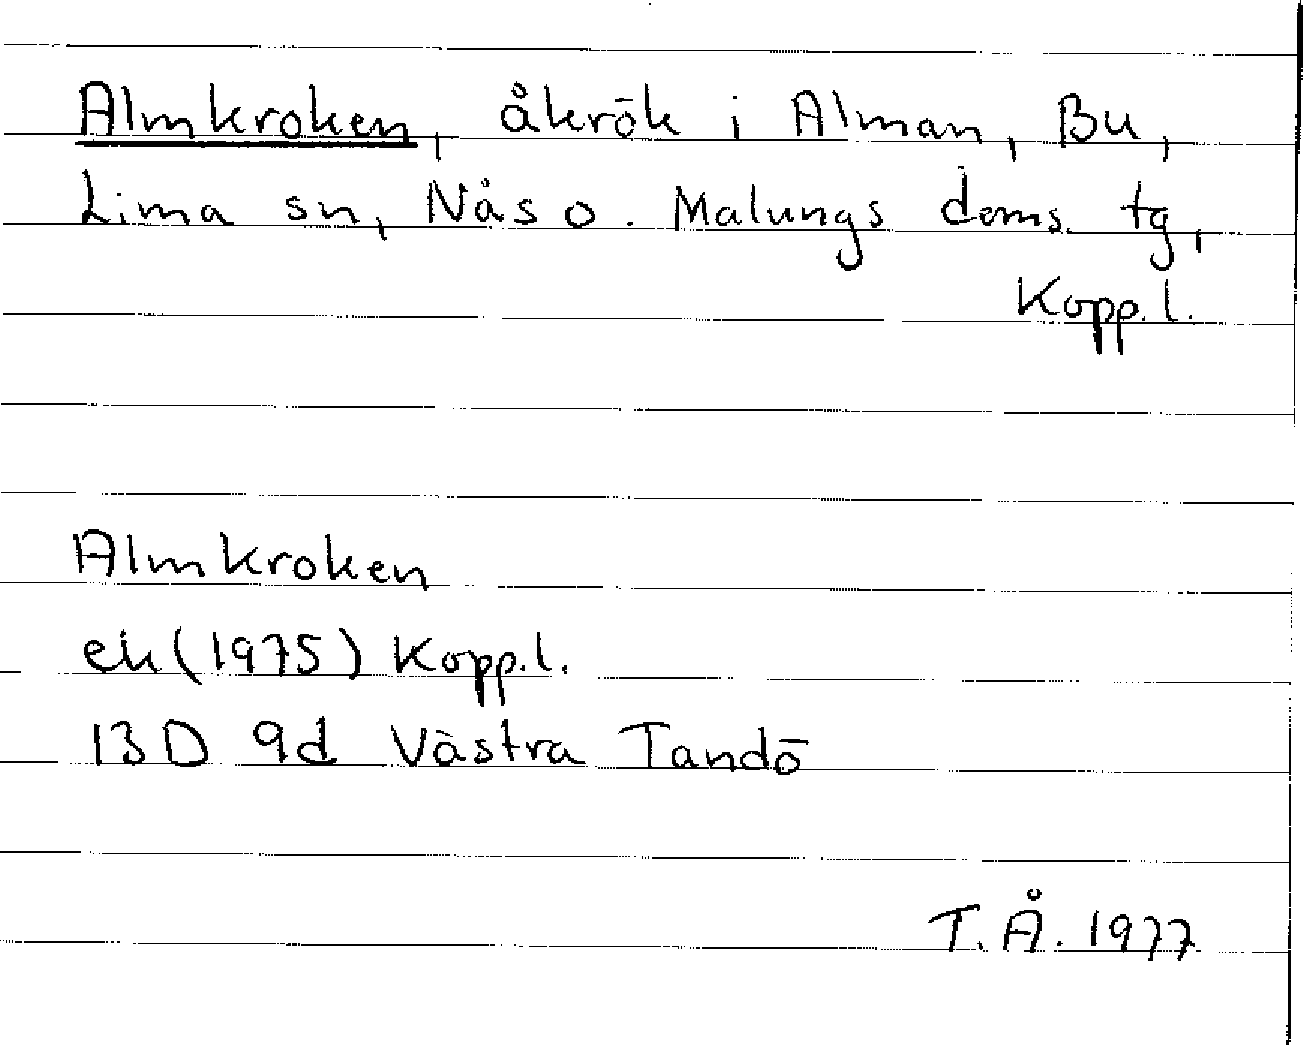 Almkroken, åkrök i Alman, Bu,
Lima sn, Nås o. Malungs doms. tg,
Kopp. l.
Almkroken
ek (1975) Kopp. l.
13 D 9d Västra Tandö
T. Å. 1977